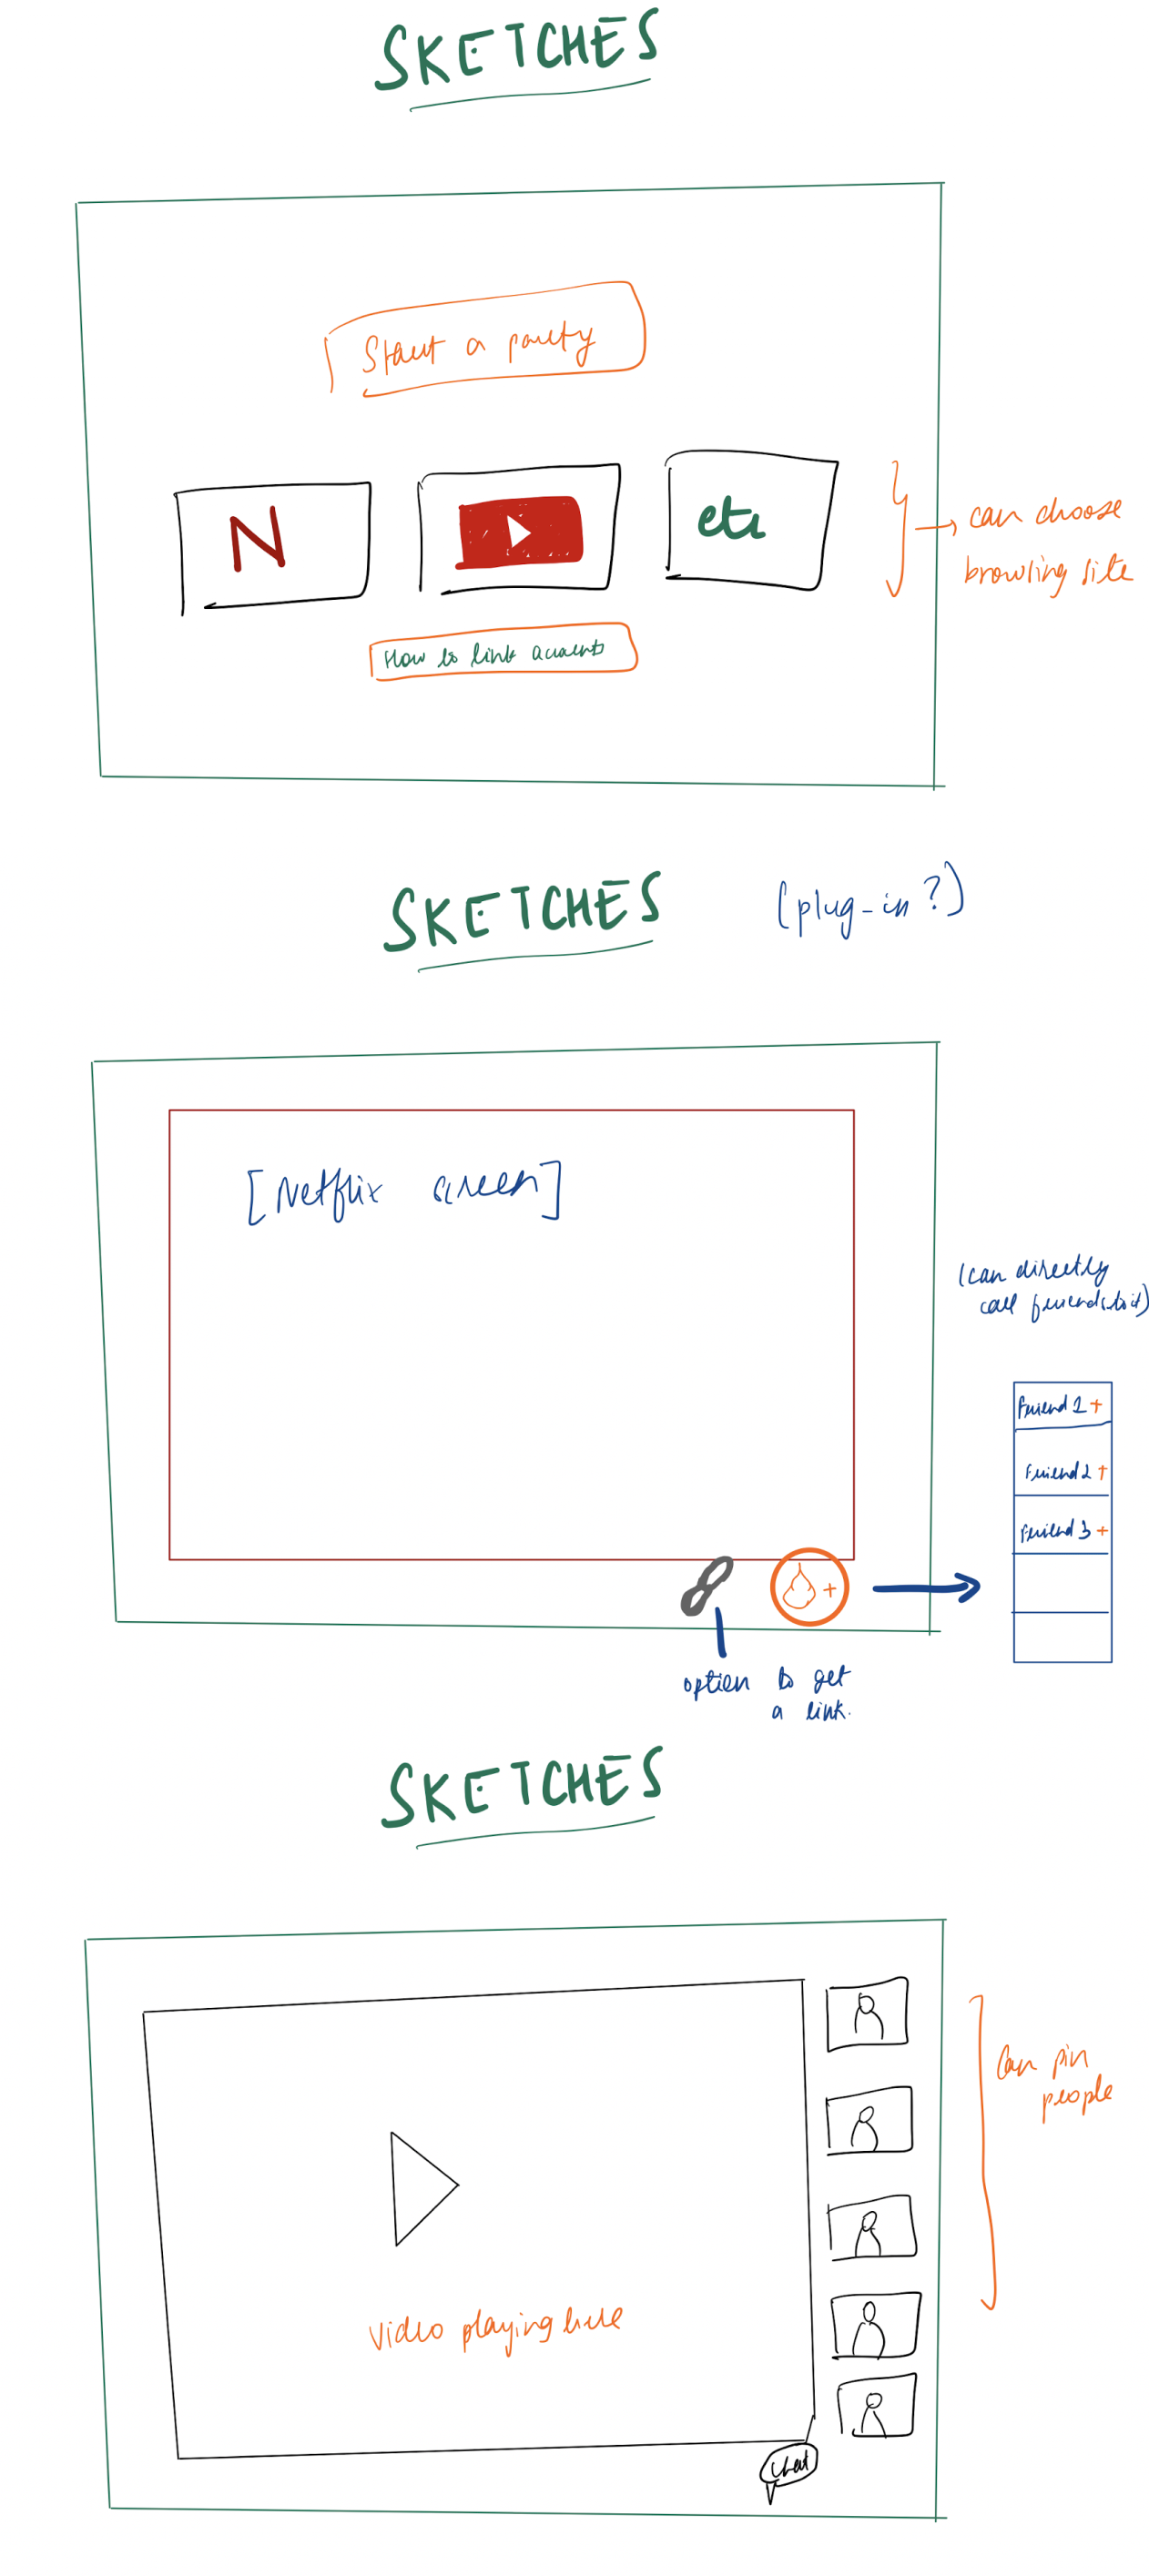 SKETCHES
Start a party
N
etc
can choose
browsing site
How to link accounts
SKETCHES
(plug-in?)
[Netflix screen]
(can directly
call friends to it)
Friend 1 +
Friend 2 +
Friend 3 +
+
option to get
a link.
SKETCHES
Can pin
people
Video playing here
Chat